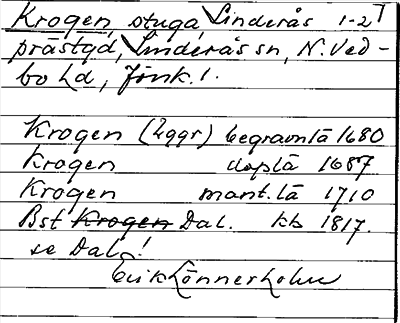 Krogen, stuga, Linderås 1-27
prästgd, Linderås sn, N. Ved-
bo hd, Jönk. l.
Krogen (2ggr) begravnlä 1680
Krogen doplä 1687
Krogen mant.lä 1710
Bst Krogen Dal. kb 1817.
se Dal!
Erik Lönnerholm